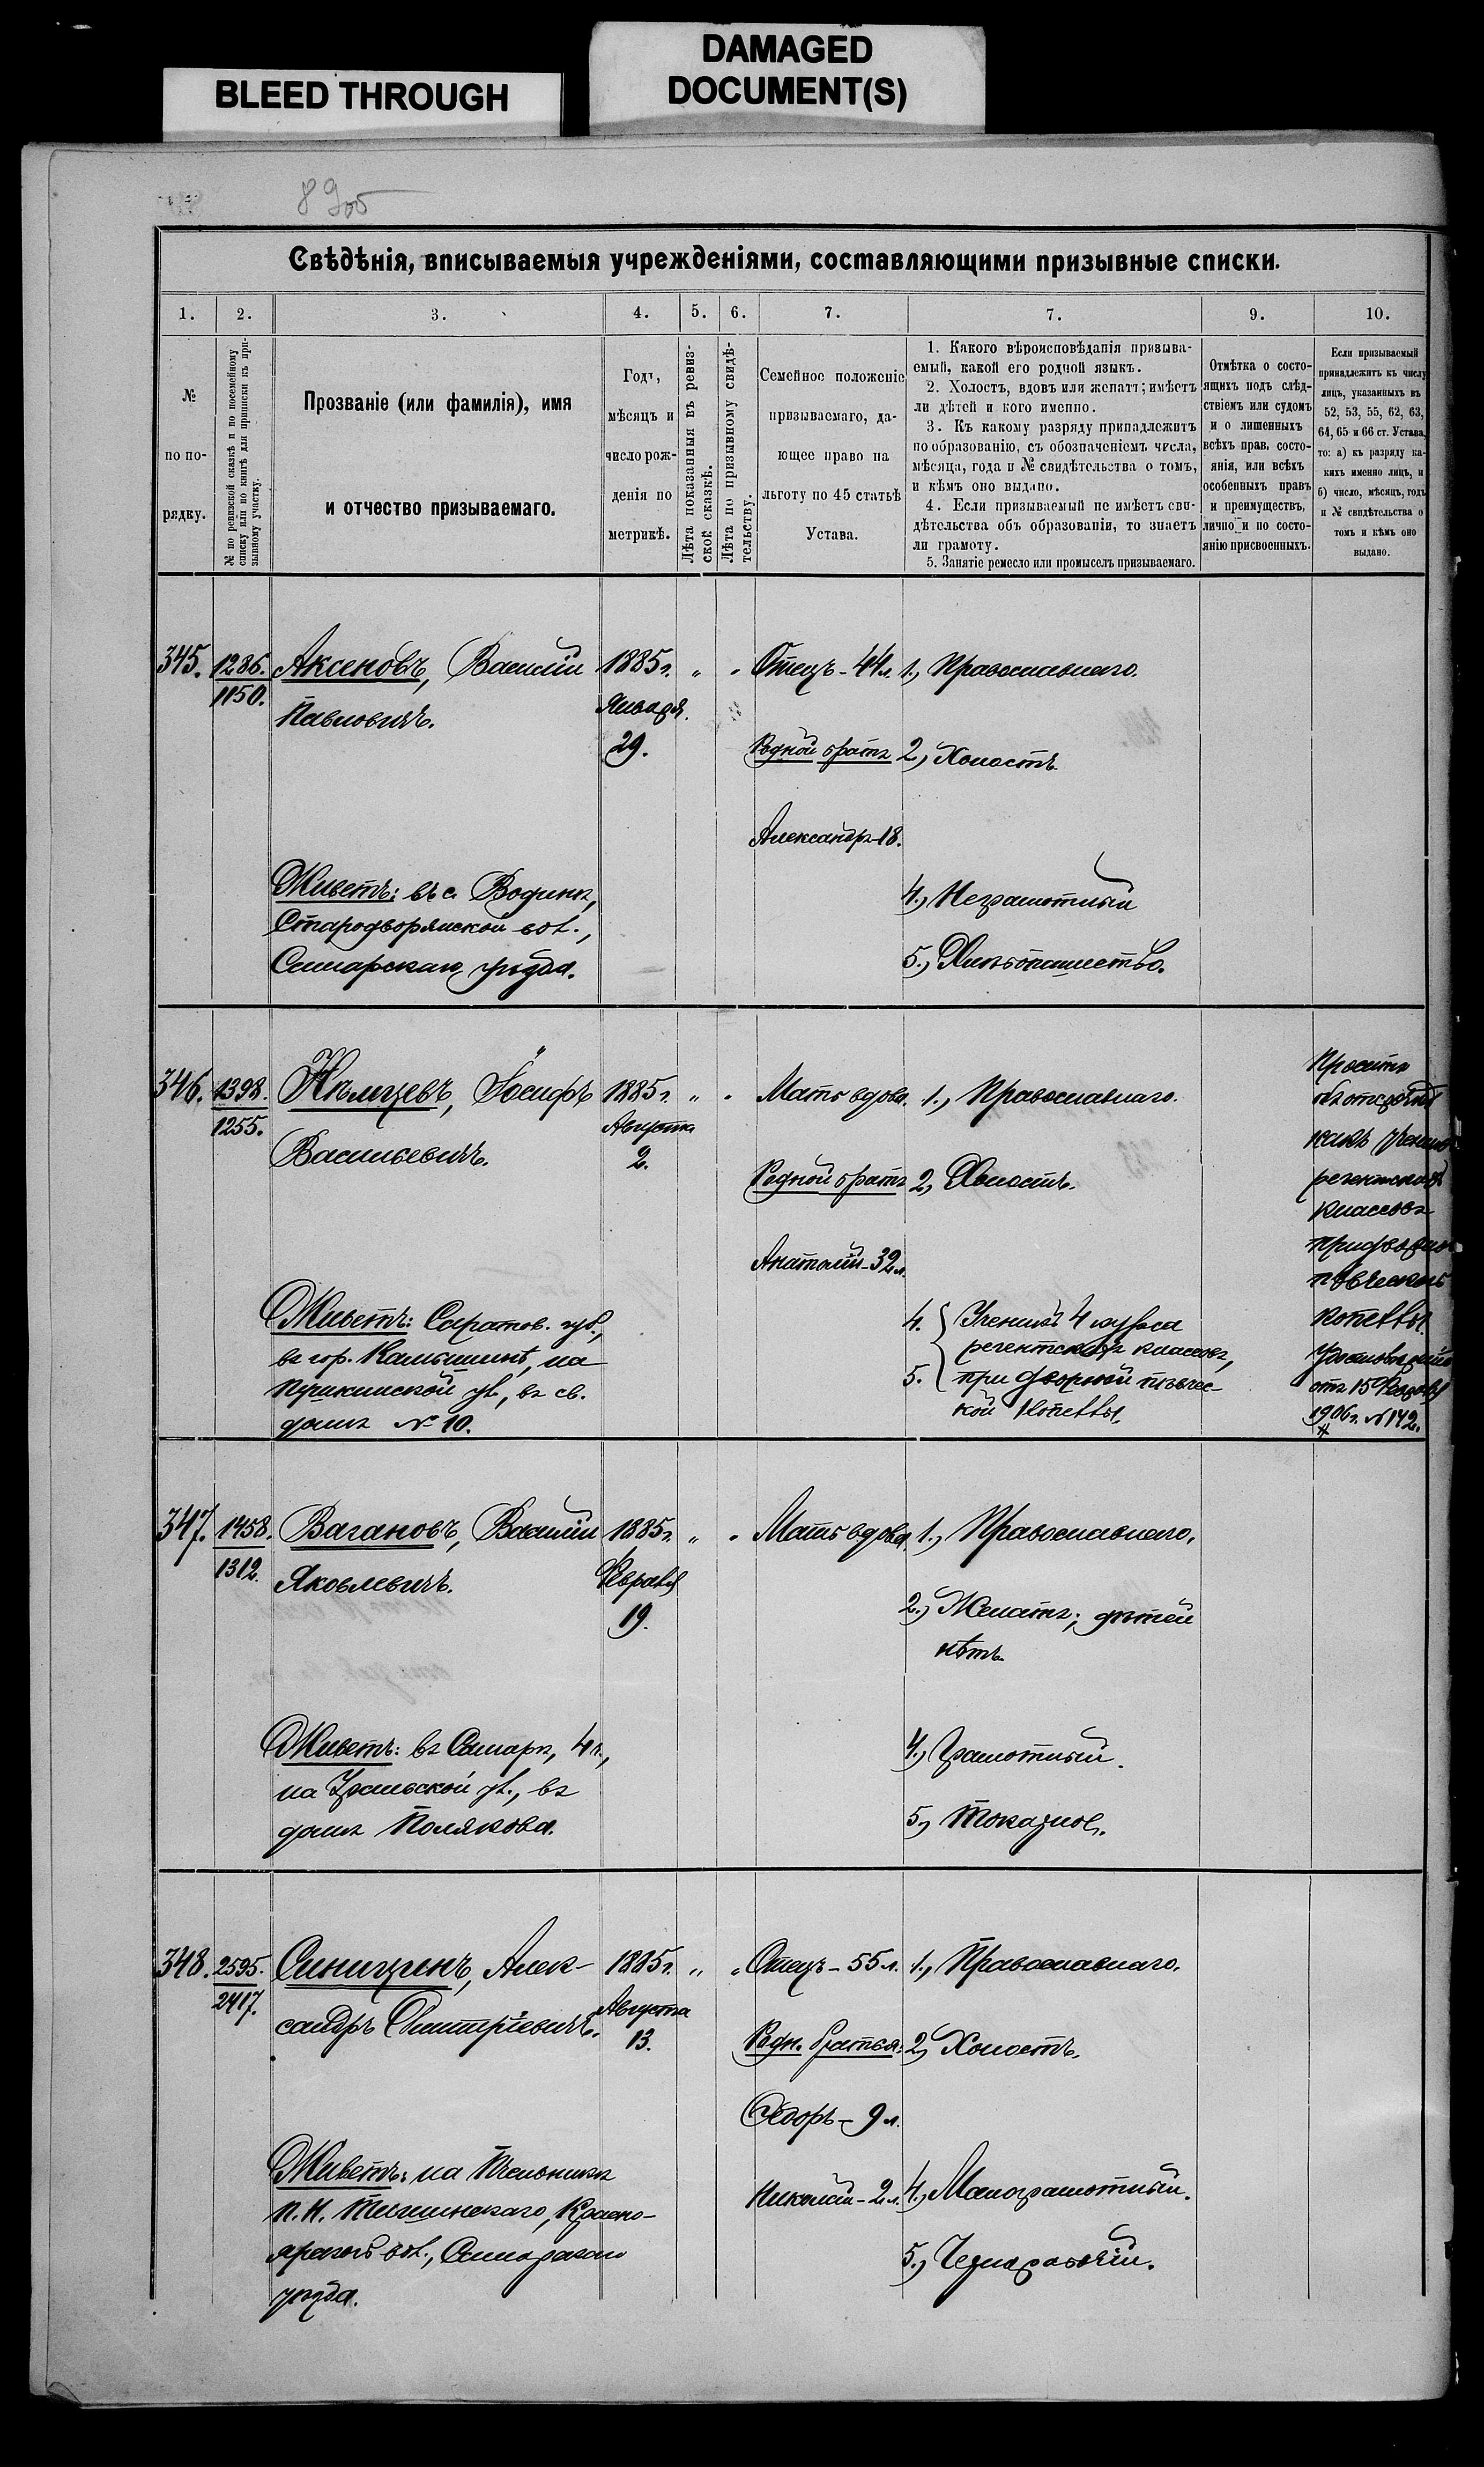 BLEED THROUGH
DAMAGED
DOCUMENT(S)
89об
Свѣдѣнія, вписываемыя учрежденіями, составляющими призывные списки.
1. 2. 3. 4. 5. 6. 7. 7. 9. 10.
№
по по-
рядку.
№ по ревизской сказкѣ и по посемейному
списку или по книгѣ для приписки къ при-
зывному участку.
Прозваніе (или фамилія), имя
и отчество призываемаго.
Годъ,
мѣсяцъ и
число рож-
денія по
метрикѣ.
Лѣта показанныя въ ревиз-
ской сказкѣ.
Лѣта по призывному свидѣ-
тельству.
Семейное положеніе
призываемаго, да-
ющее право на
льготу по 45 статьѣ
Устава.
1. Какого вѣроисповѣданія призыва-
емый, какой его родной языкъ.
2. Холостъ, вдовъ или женатъ; имѣетъ
ли дѣтей и кого именно.
3. Къ какому разряду принадлежитъ
по образованію, съ обозначеніемъ числа,
мѣсяца, года и № свидѣтельства о томъ,
и кѣмъ оно выдано.
4. Если призываемый не имѣетъ сви-
дѣтельства объ образованіи, то знаетъ
ли грамоту.
5. Занятіе ремесло или промыселъ призываемаго.
Отмѣтка о состо-
ящихъ подъ слѣд-
ствіемъ или судомъ
и о лишенныхъ
всѣхъ прав, состо-
янія, или всѣхъ
особенныхъ правъ
и преимуществъ,
лично и по состо-
янію присвоенныхъ.
Если призываемый
принадлежитъ къ числу
лицъ, указанныхъ въ
52, 53, 55, 62, 63,
64, 65 и 66 ст. Устава,
то: а) къ разряду ка-
кихъ именно лицъ, и
б) число, мѣсяцъ, годъ
и № свидѣтельства о
томъ и кѣмъ оно
выдано.
345. 1286. Аксеновъ, Василій 1885г. „ „ Отецъ - 44 л. 1., Православнаго.
1150. Павловичъ. Января
29. Родной братъ 2., Холостъ.
Александръ - 18.
Живетъ: въ с. Водинѣ, 4., Неграмотный
Стародворянской вол.,
Самарскаго уѣзда. 5., Хлѣбопашество.
346. 1398. Нѣмцевъ, Іосифъ 1885г. „ „ Мать вдова. 1., Православнаго.
1255. Васильевичъ. Августа
2. Родной братъ 2., Холостъ.
Анатолій - 32 л.
Живетъ: Саратов. губ.,
въ гор. Камышинѣ, на
Пушкинской ул., въ св.
домѣ № 10.
4. Ученикъ 4 курса
регентскихъ классовъ,
5. при дворной пѣвчес-
кой Капеллы.
Проситъ
объ отсрочкѣ
какъ ученикъ
регентскихъ
классовъ
придворной
пѣвческой
капеллы.
от 15
1906г. № 142.
347. 1458. Вагановъ, Василій 1885г. „ „ Мать вдова. 1., Православнаго.
1312. Яковлевичъ. Февраля
19. 2., Женатъ; дѣтей
нѣтъ.
Живетъ: въ Самарѣ, 4 ч., 4., Грамотный.
на Уральской ул., въ
домѣ Полякова. 5., Токарное.
348. 2595. Синицинъ, Алек- 1885г. „ „ Отецъ - 55 л. 1., Православнаго.
2417. сандръ Дмитріевичъ. Августа
13. Родн. братья: 2., Холостъ.
Ѳедоръ - 9 л.
Живетъ: на Мельникѣ
Николай - 2 л. 4., Малограмотный.
П. И. Красно-
ярской вол., Самарскаго 5., Чернорабочій.
уѣзда.